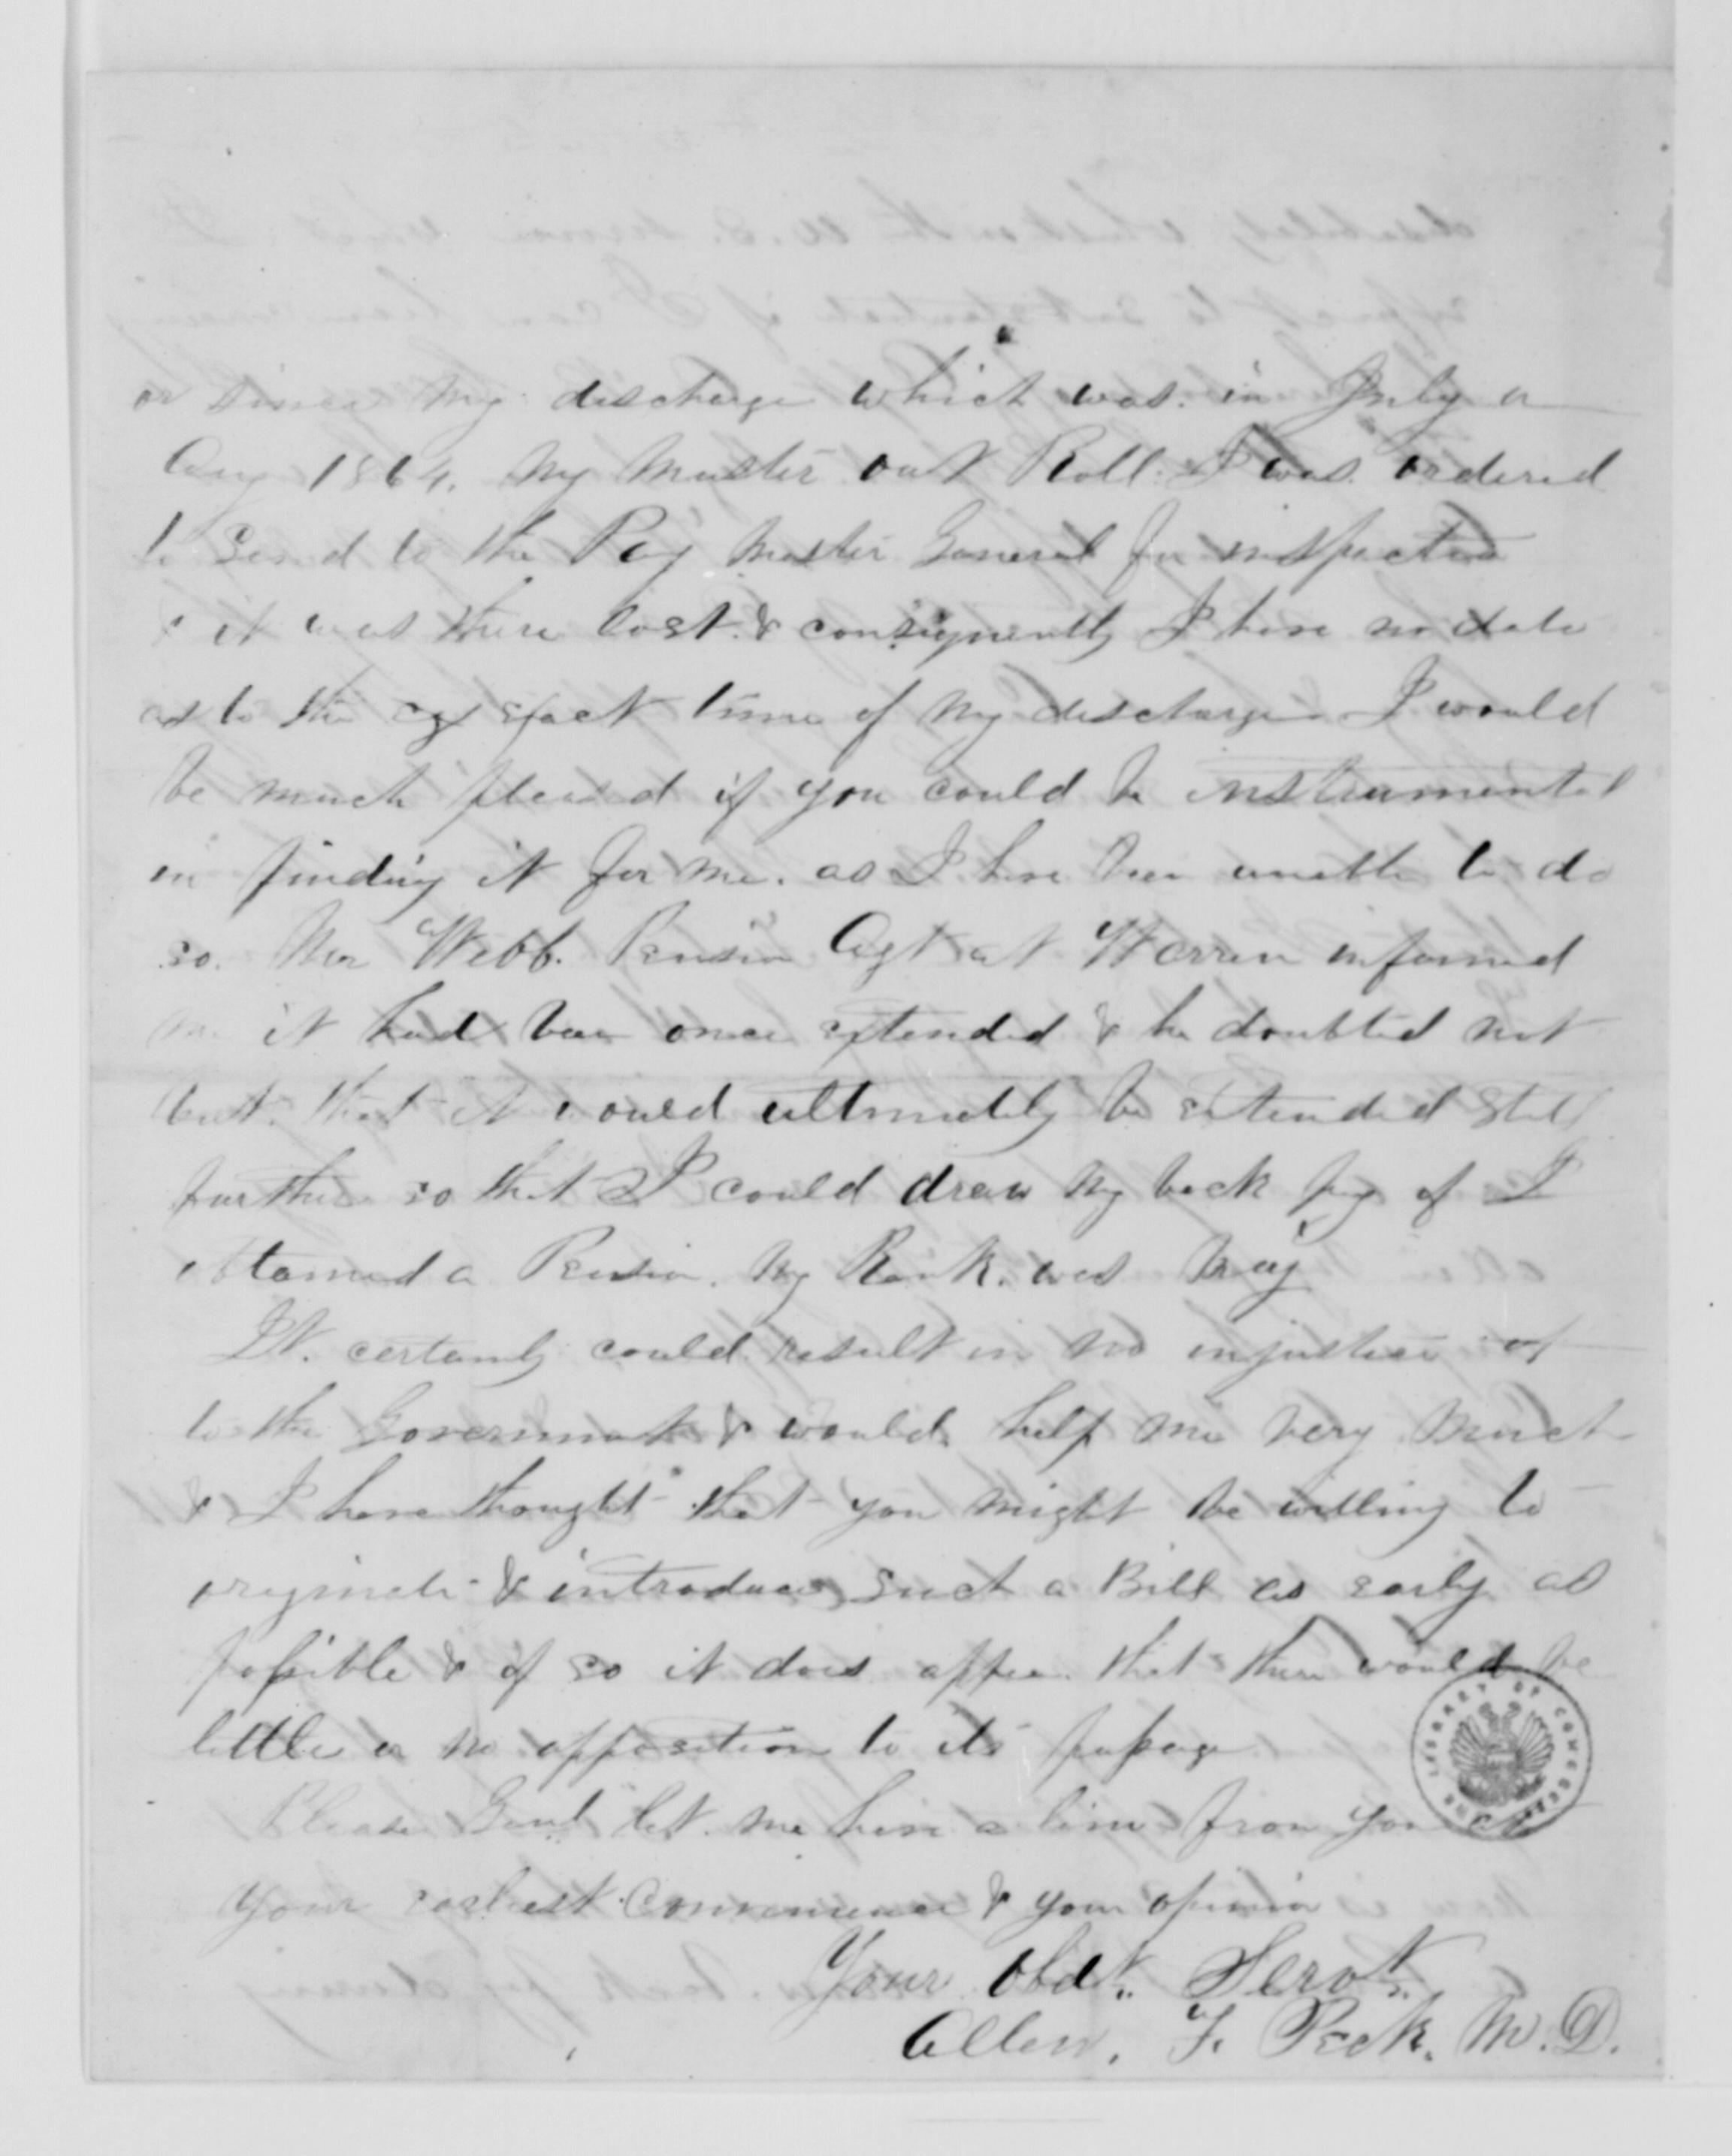 or since my discharge which was in July or
Aug 1864. My Muster out Roll I was ordered
to Send to the Pay Master General for inspection
& it was there lost. & consiquently I have no data
as to the exact time of my discharge I would
be much pleased if you could be instrumental
in finding it for me. as I have been unable to do
so. Mr Webb. Pension Agt at Warren informed
me it had been once extended & he doubted not
but that it would ultimately be extended still
further so that I could draw my back pay if I
obtained a Pension. My Rank. was Maj
It. certainly could result in no injustice
to the Government & would help me very Much
& I have thought that you might be willing to
originate & introduce such a Bill as early as
possible & if so it does appear that there would be
little or no opposition to its passage
Please Genl let me have a line from you at
your earliest Convenience & your opinion
Your Obdt. Servt.
Allen. F. Peck. M.D.
THE LIBRARY OF CONGRESS